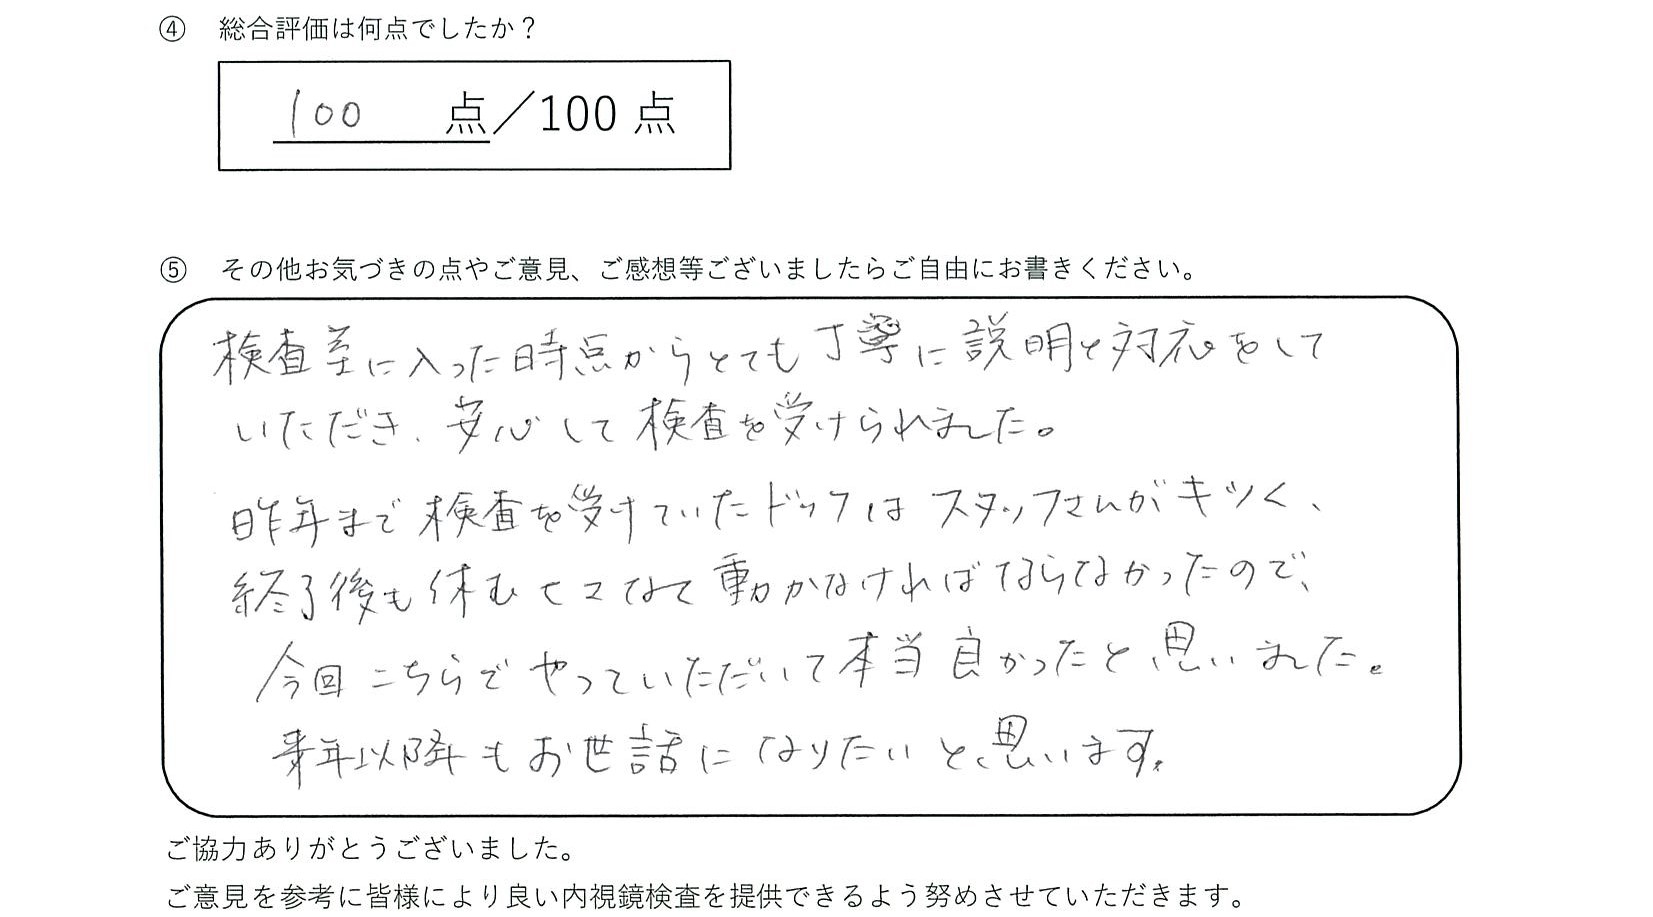 ④ 総合評価は何点でしたか？
100 点／100 点
⑤ その他お気づきの点やご意見、ご感想等ございましたらご自由にお書きください。
検査室に入った時点からとても丁寧に説明と対応をして
いただき、安心して検査を受けられました。
昨年まで検査を受けていたドックはスタッフさんがキツく、
終了後も休むヒマなく動かなければならなかったので、
今回こちらでやっていただいて本当良かったと思いました。
来年以降もお世話になりたいと思います。
ご協力ありがとうございました。
ご意見を参考に皆様により良い内視鏡検査を提供できるよう努めさせていただきます。